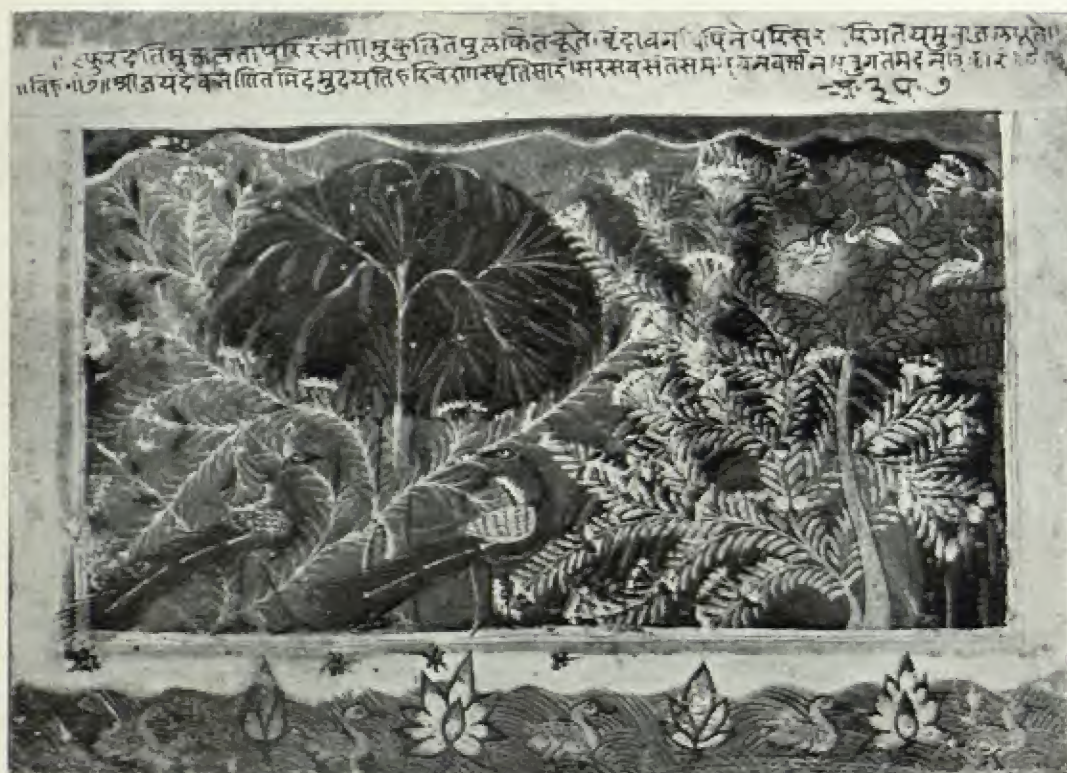 स्फुरदतिमुक्तलतापरिरंभणमुकुलितपुलकितचूते वृंदावनविपिनेपरिसर परिगतयमुनाजलपूते॥
श्रीजयदेवभणितमिदमुदयतिहरिचरणस्मृतिसारं सरसवसंतसमयवनवर्णनमनुगतमदन